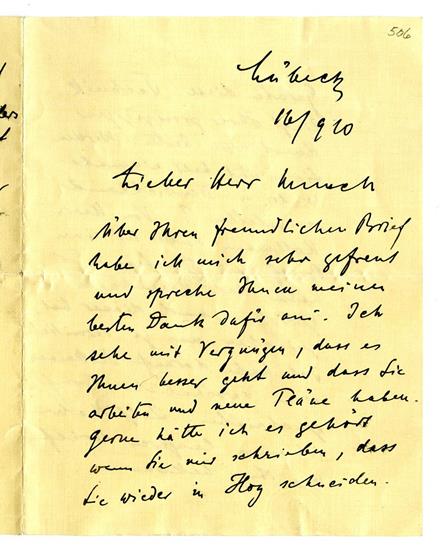 506
Lübeck
16/9 20
Lieber Herr Munch
Über Ihren freundlichen Brief
habe ich mich sehr gefreut
und spreche Ihnen meinen
besten Dank dafür aus. Ich
sehe mit Vergnügen, dass es
Ihnen besser geht und dass Sie
arbeiten und neue Pläne haben.
Gerne hätte ich es gehört
wenn Sie mir schrieben, dass
Sie wieder in Holz schneiden.